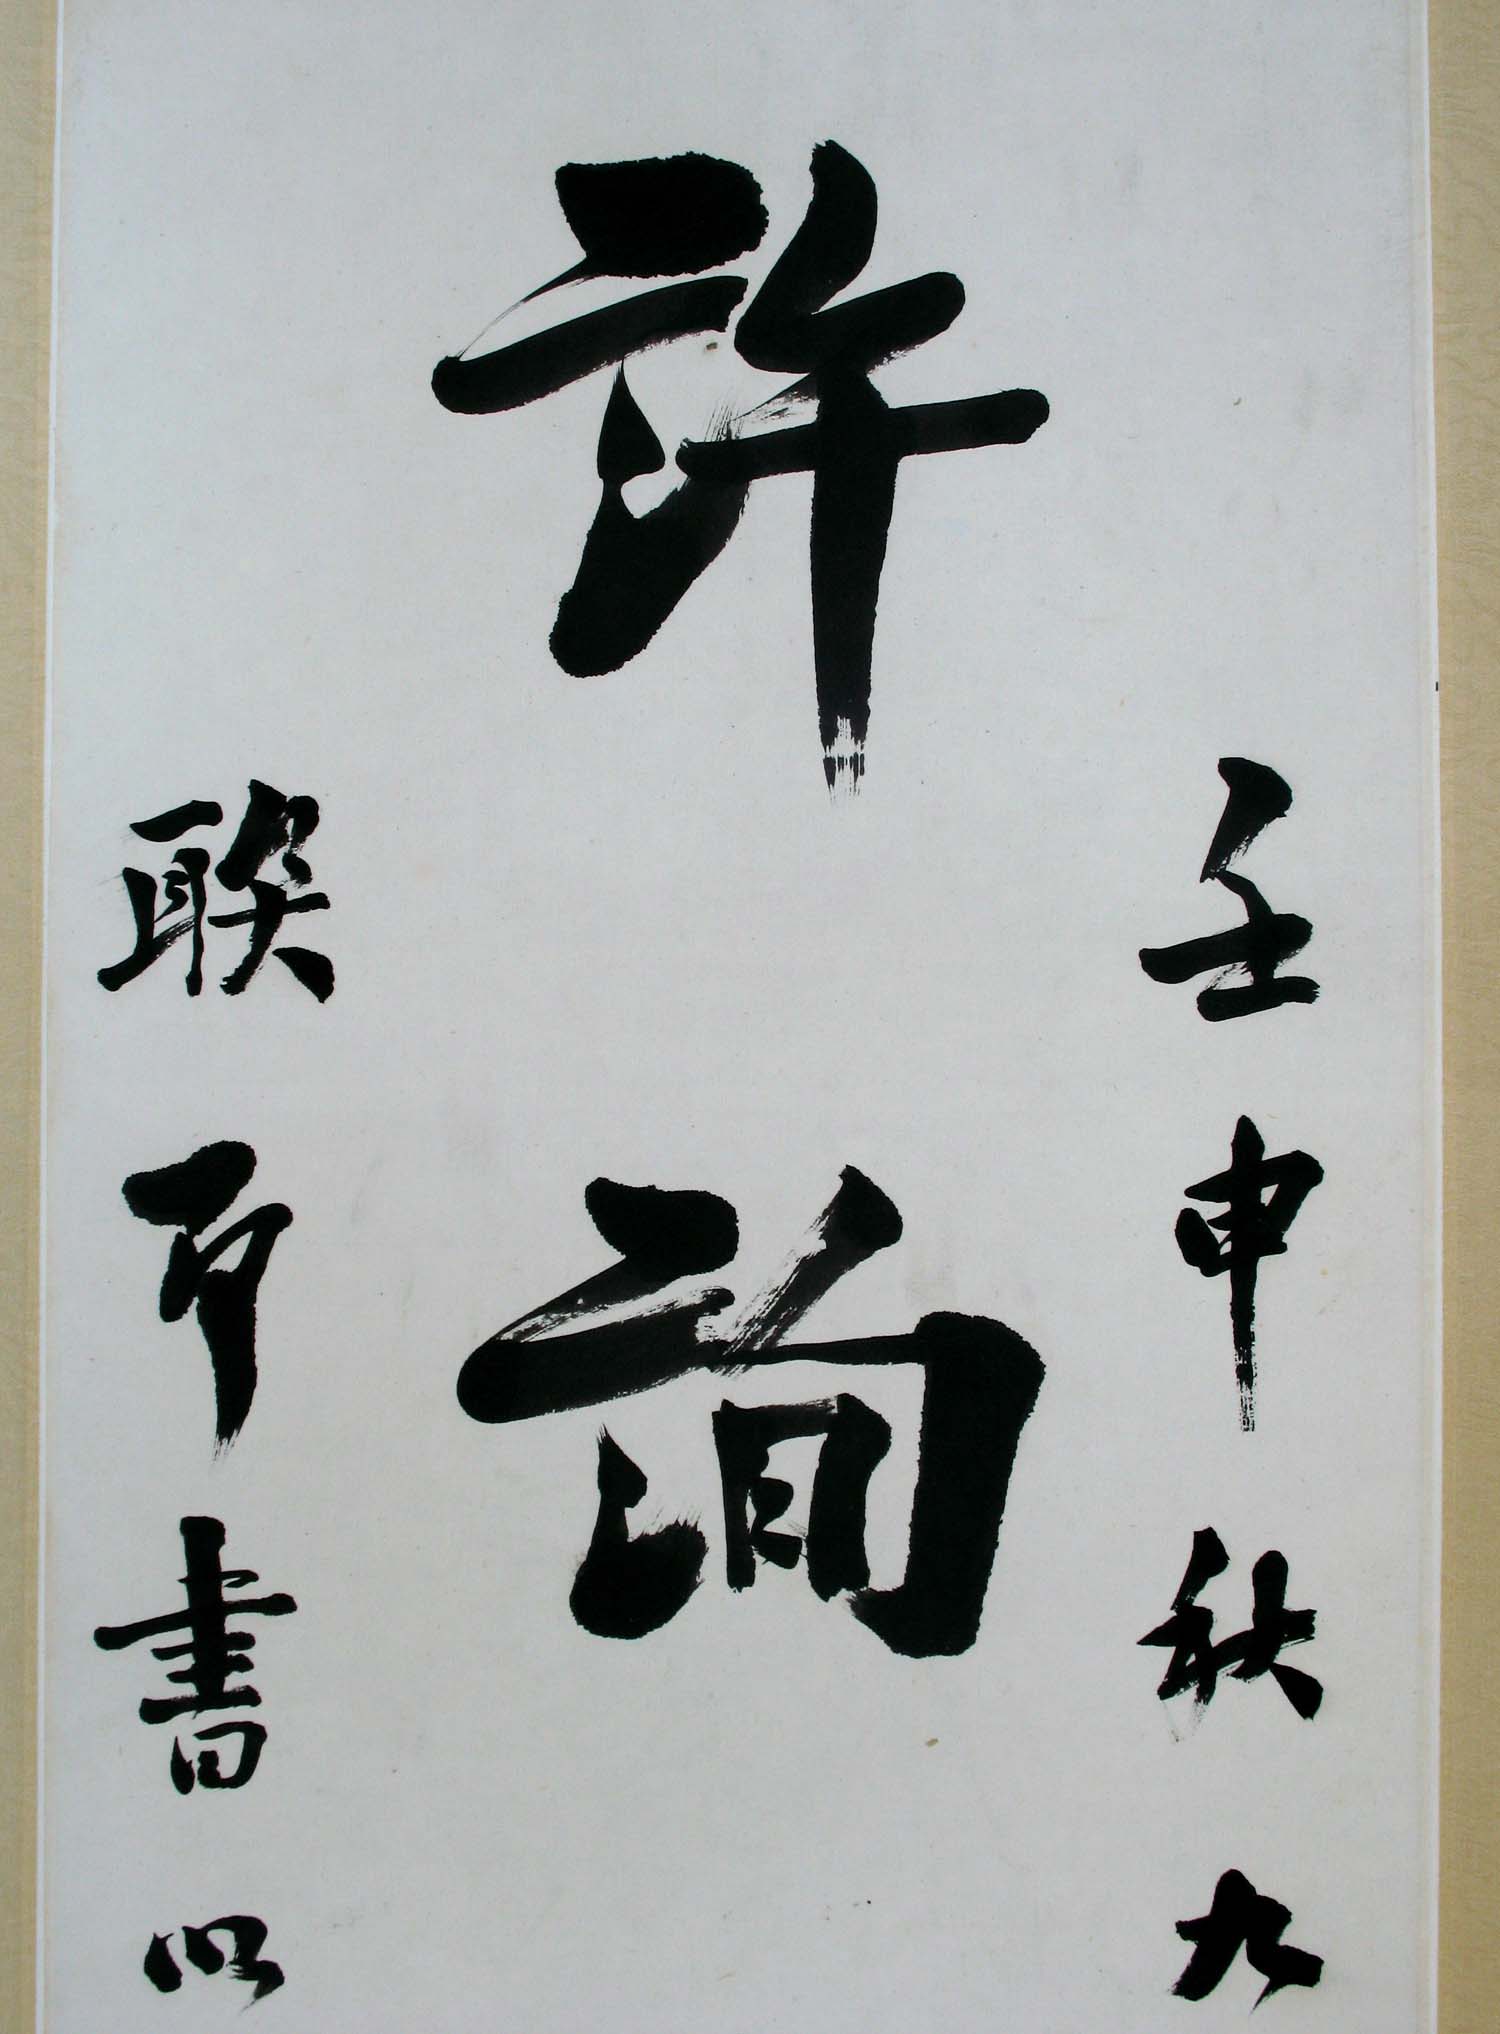 壬申秋九
許詢
聯即書以